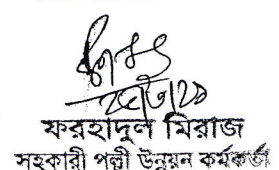 ফরহাদুল মিরাজ
সহকারী পল্লী উন্নয়ন কর্মকর্তা